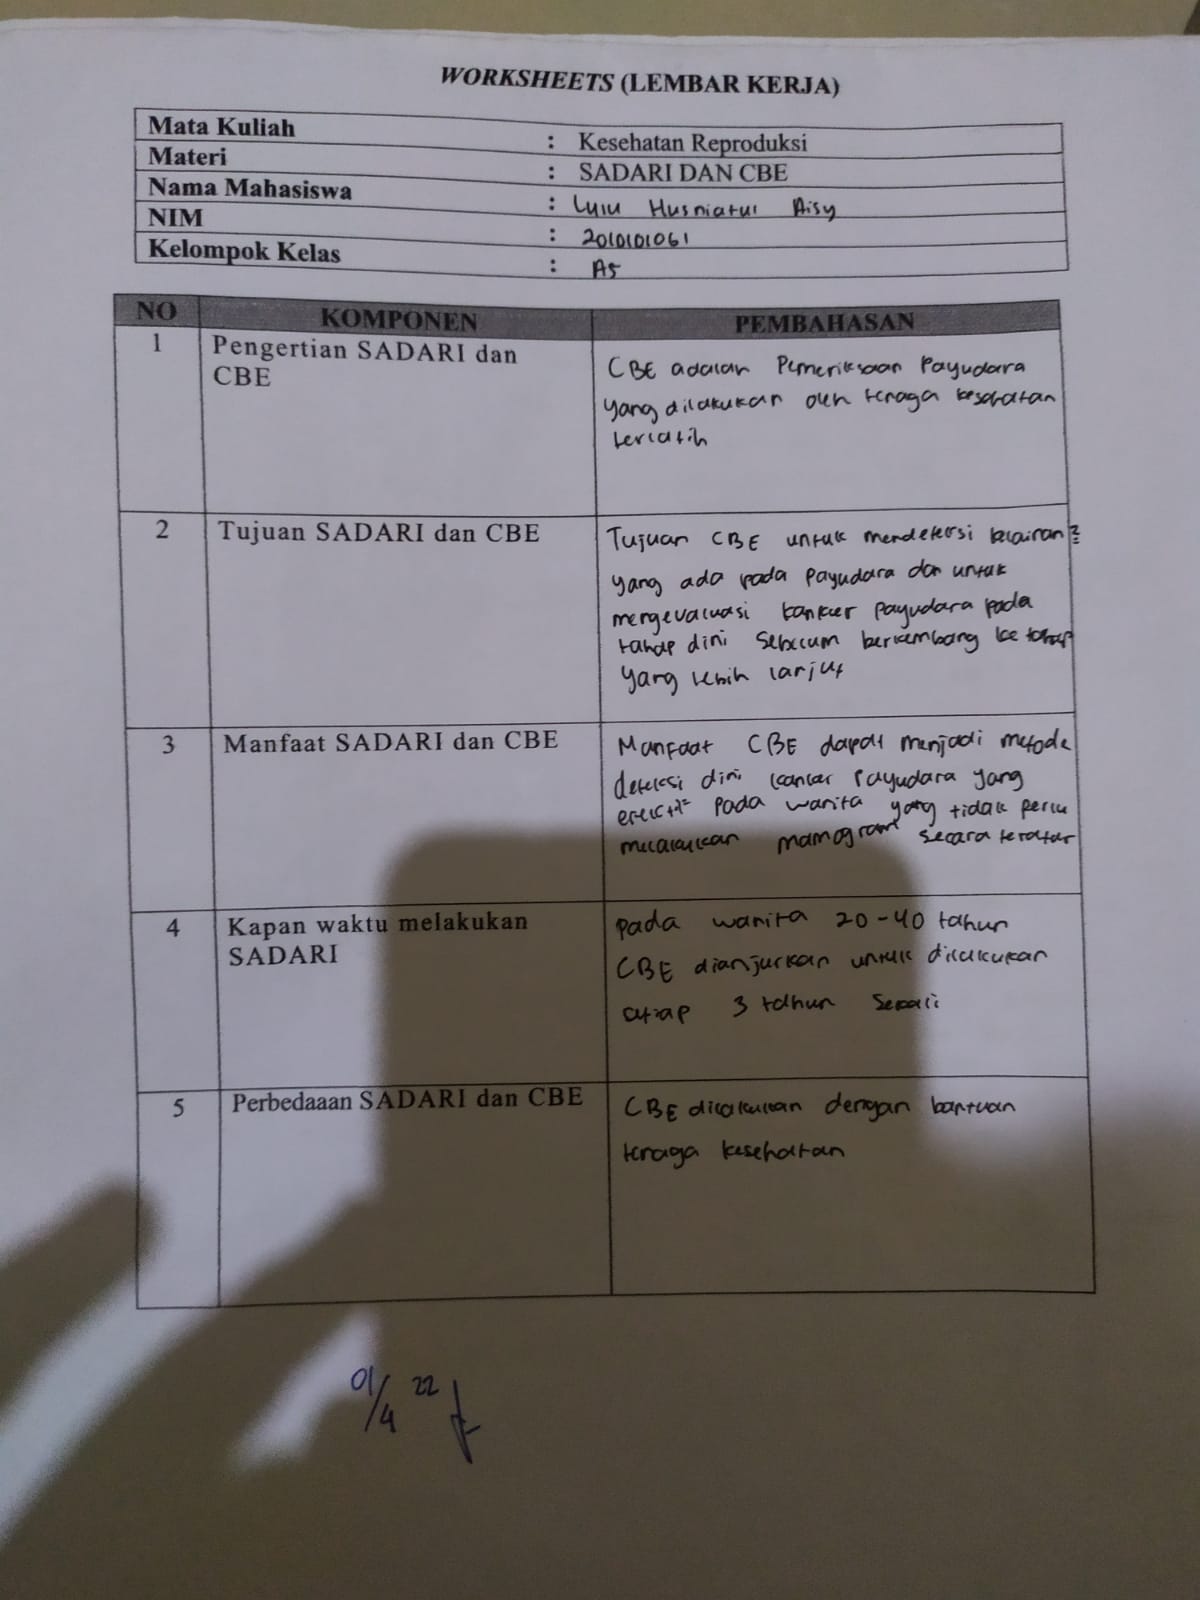 WORKSHEETS (LEMBAR KERJA)
Mata Kuliah : Kesehatan Reproduksi
Materi : SADARI DAN CBE
Nama Mahasiswa : Lulu Husniatul Aisy
NIM : 2010101061
Kelompok Kelas : A5
NO KOMPONEN PEMBAHASAN
1 Pengertian SADARI dan
CBE
CBE adalah Pemeriksaan Payudara
yang dilakukan oleh tenaga kesehatan
terlatih
2 Tujuan SADARI dan CBE
Tujuan CBE untuk mendeteksi kelainan2
yang ada pada payudara dan untuk
mengevaluasi kanker payudara pada
tahap dini sebelum berkembang ke tahap
yang lebih lanjut
3 Manfaat SADARI dan CBE
Manfaat CBE dapat menjadi metode
deteksi dini kanker Payudara yang
efektif pada wanita yang tidak perlu
melakukan mamogram secara teratur
4 Kapan waktu melakukan
SADARI
pada wanita 20-40 tahun
CBE dianjurkan untuk dilakukan
setiap 3 tahun sekali
5 Perbedaaan SADARI dan CBE
CBE dilakukan dengan bantuan
tenaga kesehatan
01/4 22